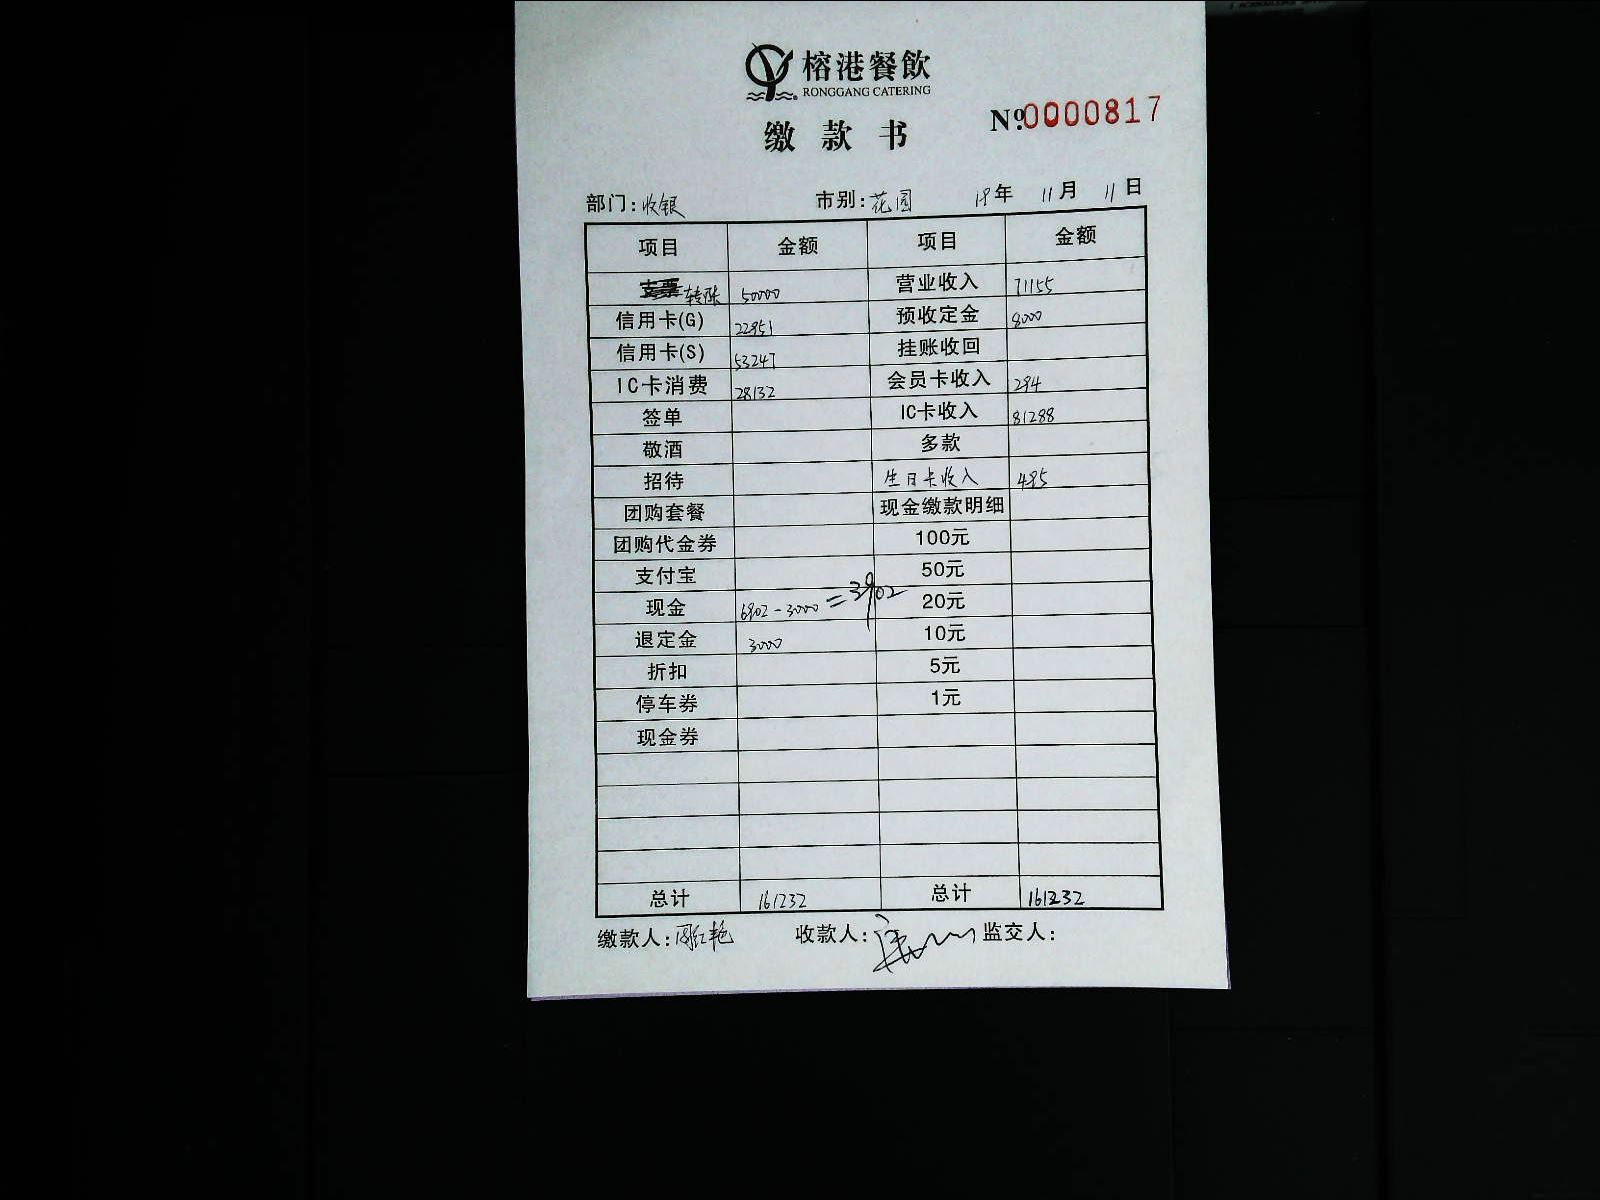 榕港餐飲
RONGGANG CATERING
缴款书
№0000817
部门:收银 市别:花园 18年 11月 11日
项目 金额 项目 金额
转账 50000 营业收入 71155
信用卡(G) 22951 预收定金 8000
信用卡(S) 53247 挂账收回
IC卡消费 28132 会员卡收入 294
签单 IC卡收入 81288
敬酒 多款
招待 生日卡收入 495
团购套餐 现金缴款明细
团购代金券 100元
支付宝 50元
现金 6902-3000=3902 20元
退定金 3000 10元
折扣 5元
停车券 1元
现金券
总计 161232 总计 161232
缴款人:周红艳 收款人: 监交人: